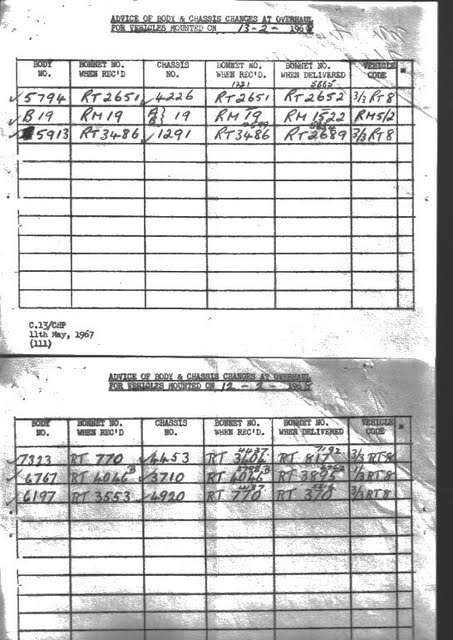 ADVICE OF BODY & CHASSIS CHANGES AT OVERHAUL
FOR VEHICLES MOUNTED ON 13-2- 1968
BODY NO. BONNET NO. WHEN REC'D CHASSIS NO. BONNET NO. WHEN REC'D. BONNET NO. WHEN DELIVERED VEHICLE CODE *
1221
5794 RT2651 4226 RT2651 RT2652 3/3 RT8
B 19 RM 19 19 RM 19 RM 1522 RM5/2
5913 RT3486 1291 RT3486 RT2689 3/3 RT8
C.13/CHP
11th May, 1967
(111)
ADVICE OF BODY & CHASSIS CHANGES AT OVERHAUL
FOR VEHICLES MOUNTED ON 12 - 2 - 1968
BODY NO. BONNET NO. WHEN REC'D CHASSIS NO. BONNET NO. WHEN REC'D. BONNET NO. WHEN DELIVERED VEHICLE CODE *
7323 RT 770 4453 RT RT 817 3/3 RT8
6767 RT 4046 B 3710 RT 4046 RT 3895 1/3 RT8
6197 RT 3553 4920 RT 770 RT 370 3/3 RT8